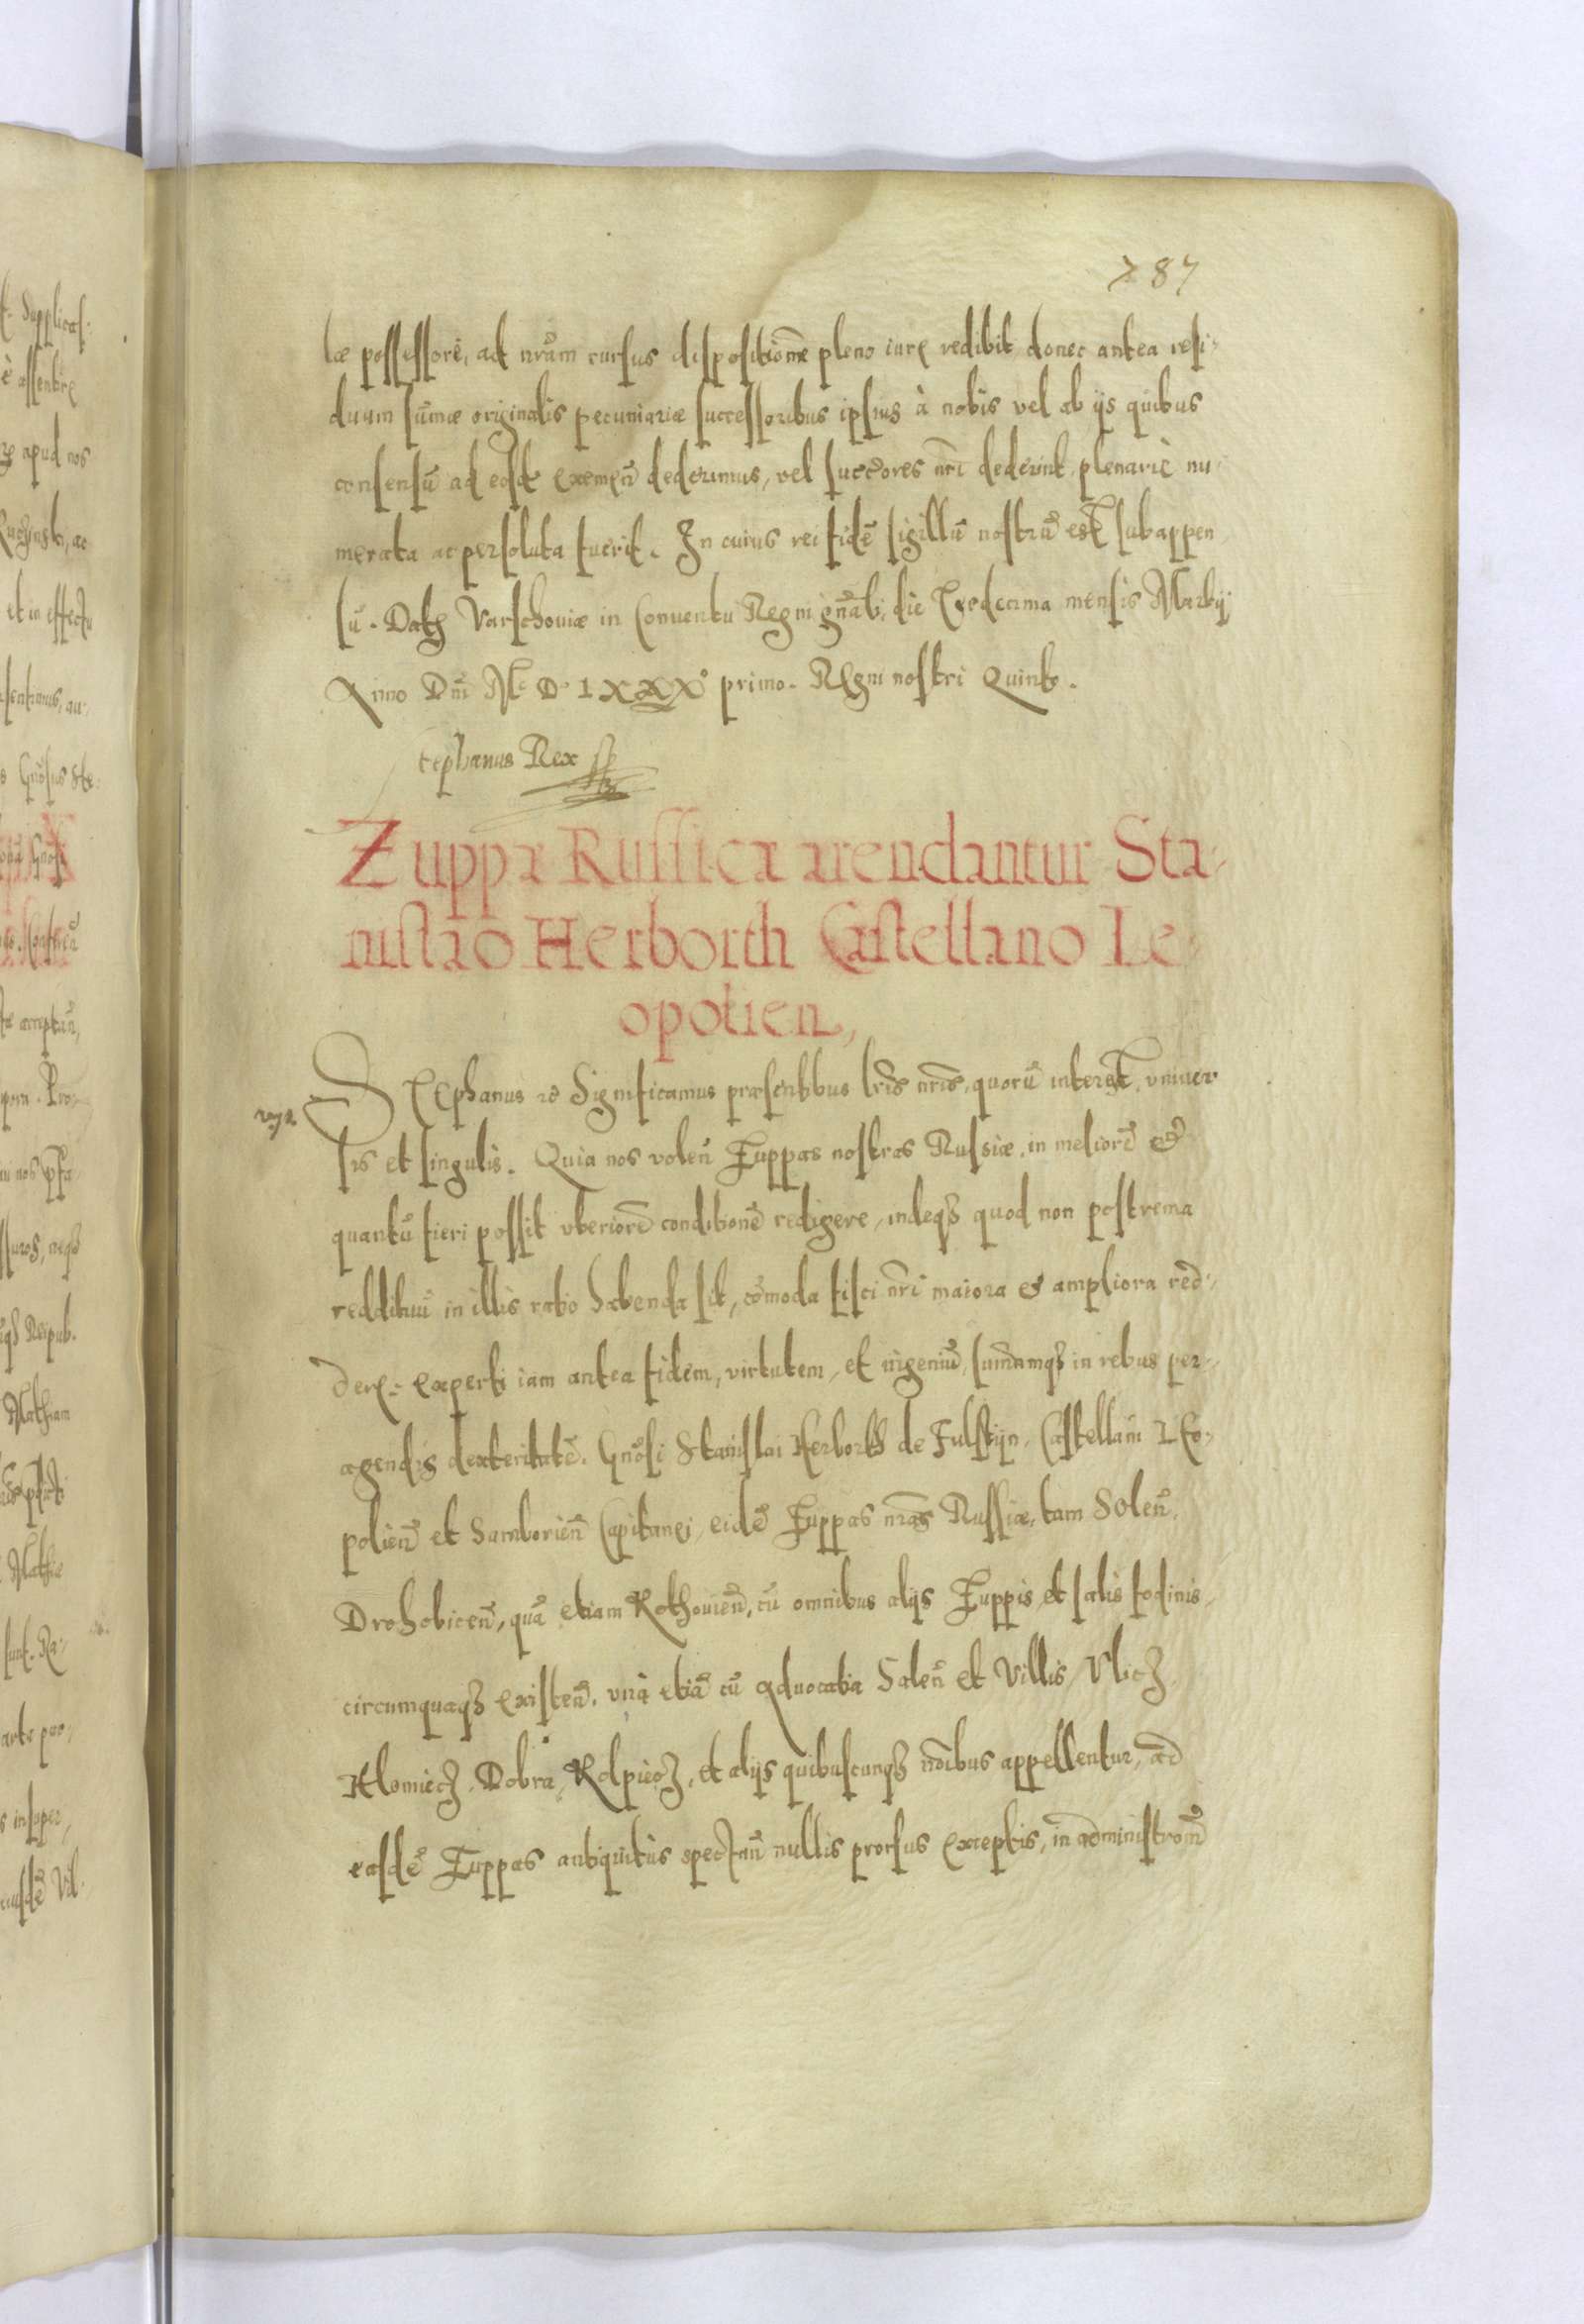 287
læ possessorē, ad nrām rursus dispositionē pleno iure redibit, donec antea resi-
duum sūmæ originalis pecuniariæ successoribus ipsius à nobis vel ab ijs quibus
consensū ad eosdē eximen̄ dederimus, vel succōres nrī dederint, plenariè nu-
merata ac persoluta fuerit. In cuius rei fidē sigillū nostrū est subappen
sū. Dat Varschoviæ in Conventu Regni gnāli, die decima mensis Martij
Anno Dnī M. D. LXXX° primo. Regni nostri Quinto.
Stephanus Rex
Zuppæ Russicæ arendantur Sta-
nislao Herborth Castellano Le-
opolien,
Stephanus etc Significamus præsentibus lrīs nrīs, quorū interest, univer
sis et singulis. Quia nos volen̄ Zuppas nostras Russiæ, in meliorē et
quantū fieri possit uberiorē conditionē redigere, indeq3 quod non postrema
reddituū in illis ratio habenda sit, cōmoda fisci nrī maiora et ampliora red-
dere. Experti iam antea fidem, virtutem, et ingeniū, summamq3 in rebus per-
agendis dexteritatē, Gnōsi Stanislai Herborth de Fulstijn, Castellani Leo-
polien̄ et Samborien̄ Capitanei, eidē Zuppas nrās Russiæ, tam Solen̄,
Drohobicen̄, quā etiam Kothovien̄, cū omnibus alijs Zuppis et salis fodinis,
circumquaq3 existen̄, unà etiā cū Advocatia Salen̄ et Villis, Ulicz
Hlomiecz, Dobra, Kolpiecz, et alijs quibuscunq3 nōibus appellentur, ad
easdē Zuppas antiquitùs spectan̄ nullis prorsus exceptis, in administronē